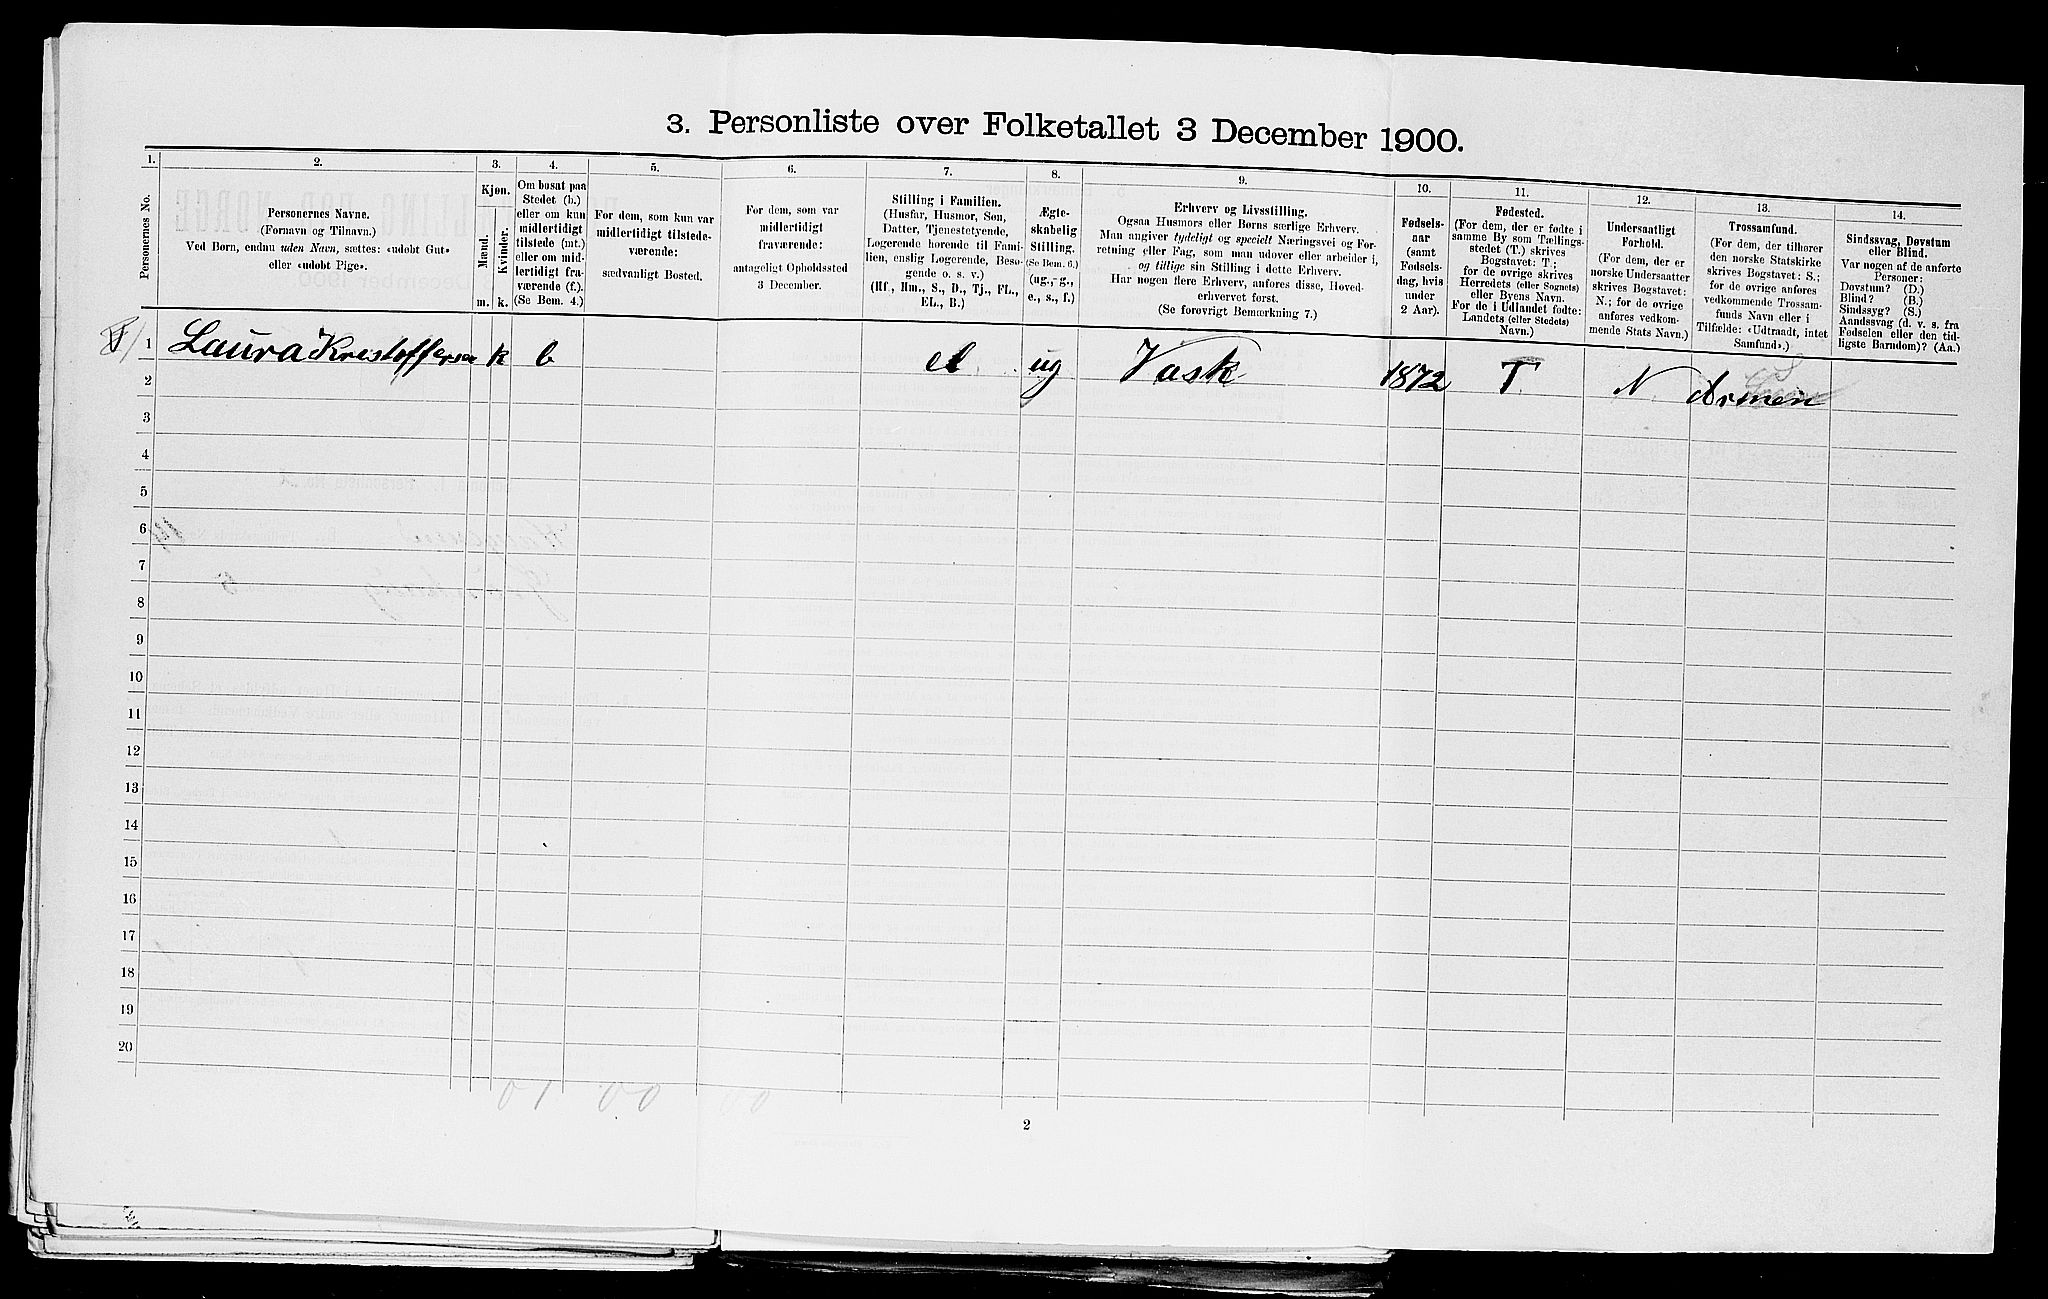 3. Personliste over Folketallet 3 December 1900.
1.
Personernes No.
2.
Personernes Navne.
(Fornavn og Tilnavn.)
Ved Børn, endnu uden Navn, sættes: «udøbt Gut»
eller «udøbt Pige».
3.
Kjøn.
Mænd.
Kvinder.
m.
k.
4.
Om bosat paa
Stedet (b.)
eller om kun
midlertidigt
tilstede (mt.)
eller om mid-
lertidigt fra-
værende (f.).
(Se Bem. 4.)
5.
For dem, som kun var
midlertidigt tilstede-
værende:
sædvanligt Bosted.
6.
For dem, som var
midlertidigt
fraværende:
antageligt Opholdssted
3 December.
7.
Stilling i Familien.
(Husfar, Husmor, Søn,
Datter, Tjenestetyende,
Løgerende hørende til Fami-
lien, enslig Løgerende, Besø-
gende o. s. v.)
(Hf., Hm., S., D., Tj., FL.,
EL., B.)
8.
Ægte-
skabelig
Stilling.
(Se Bem. 6.)
(ug., g.,
e., s., f.)
9.
Erhverv og Livsstilling.
Ogsaa Husmors eller Børns særlige Erhverv.
Man angiver tydeligt og specielt Næringsvei og For-
retning eller Fag, som man udøver eller arbeider i,
og tillige sin Stilling i dette Erhverv.
Har nogen flere Erhverv, anføres disse, Hoved-
erhvervet først.
(Se forøvrigt Bemærkning 7.)
10.
Fødsels-
aar
(samt
Fødsels-
dag, hvis
under
2 Aar).
11.
Fødested.
(For dem, der er fødte i
samme By som Tællings-
stedet (T.) skrives
Bogstavet: T.;
for de øvrige skrives
Herredets (eller Sognets)
eller Byens Navn.
For de i Udlandet fødte:
Landets (eller Stedets)
Navn.)
12.
Undersaatligt
Forhold.
(For dem, der er
norske Undersaatter
skrives Bogstavet:
N.; for de øvrige
anføres vedkom-
mende Stats Navn.)
13.
Trossamfund.
(For dem, der tilhører
den norske Statskirke
skrives Bogstavet: S.;
for de øvrige anføres
vedkommende Trossam-
funds Navn eller i
Tilfælde: «Udtraadt, intet
Samfund».)
14.
Sindssvag, Døvstum
eller Blind.
Var nogen af de anførte
Personer:
Døvstum? (D.)
Blind? (B.)
Sindssyg? (S.)
Aandssvag (d. v. s. fra
Fødselen eller den tid-
ligste Barndom)? (Aa.)
1 Laura Kristoffersen k b el ug Vask 1872 T. N. Armen S
2
3
4
5
6
7
8
9
10
11
12
13
14
15
16
17
18
19
20
01 00 00
2